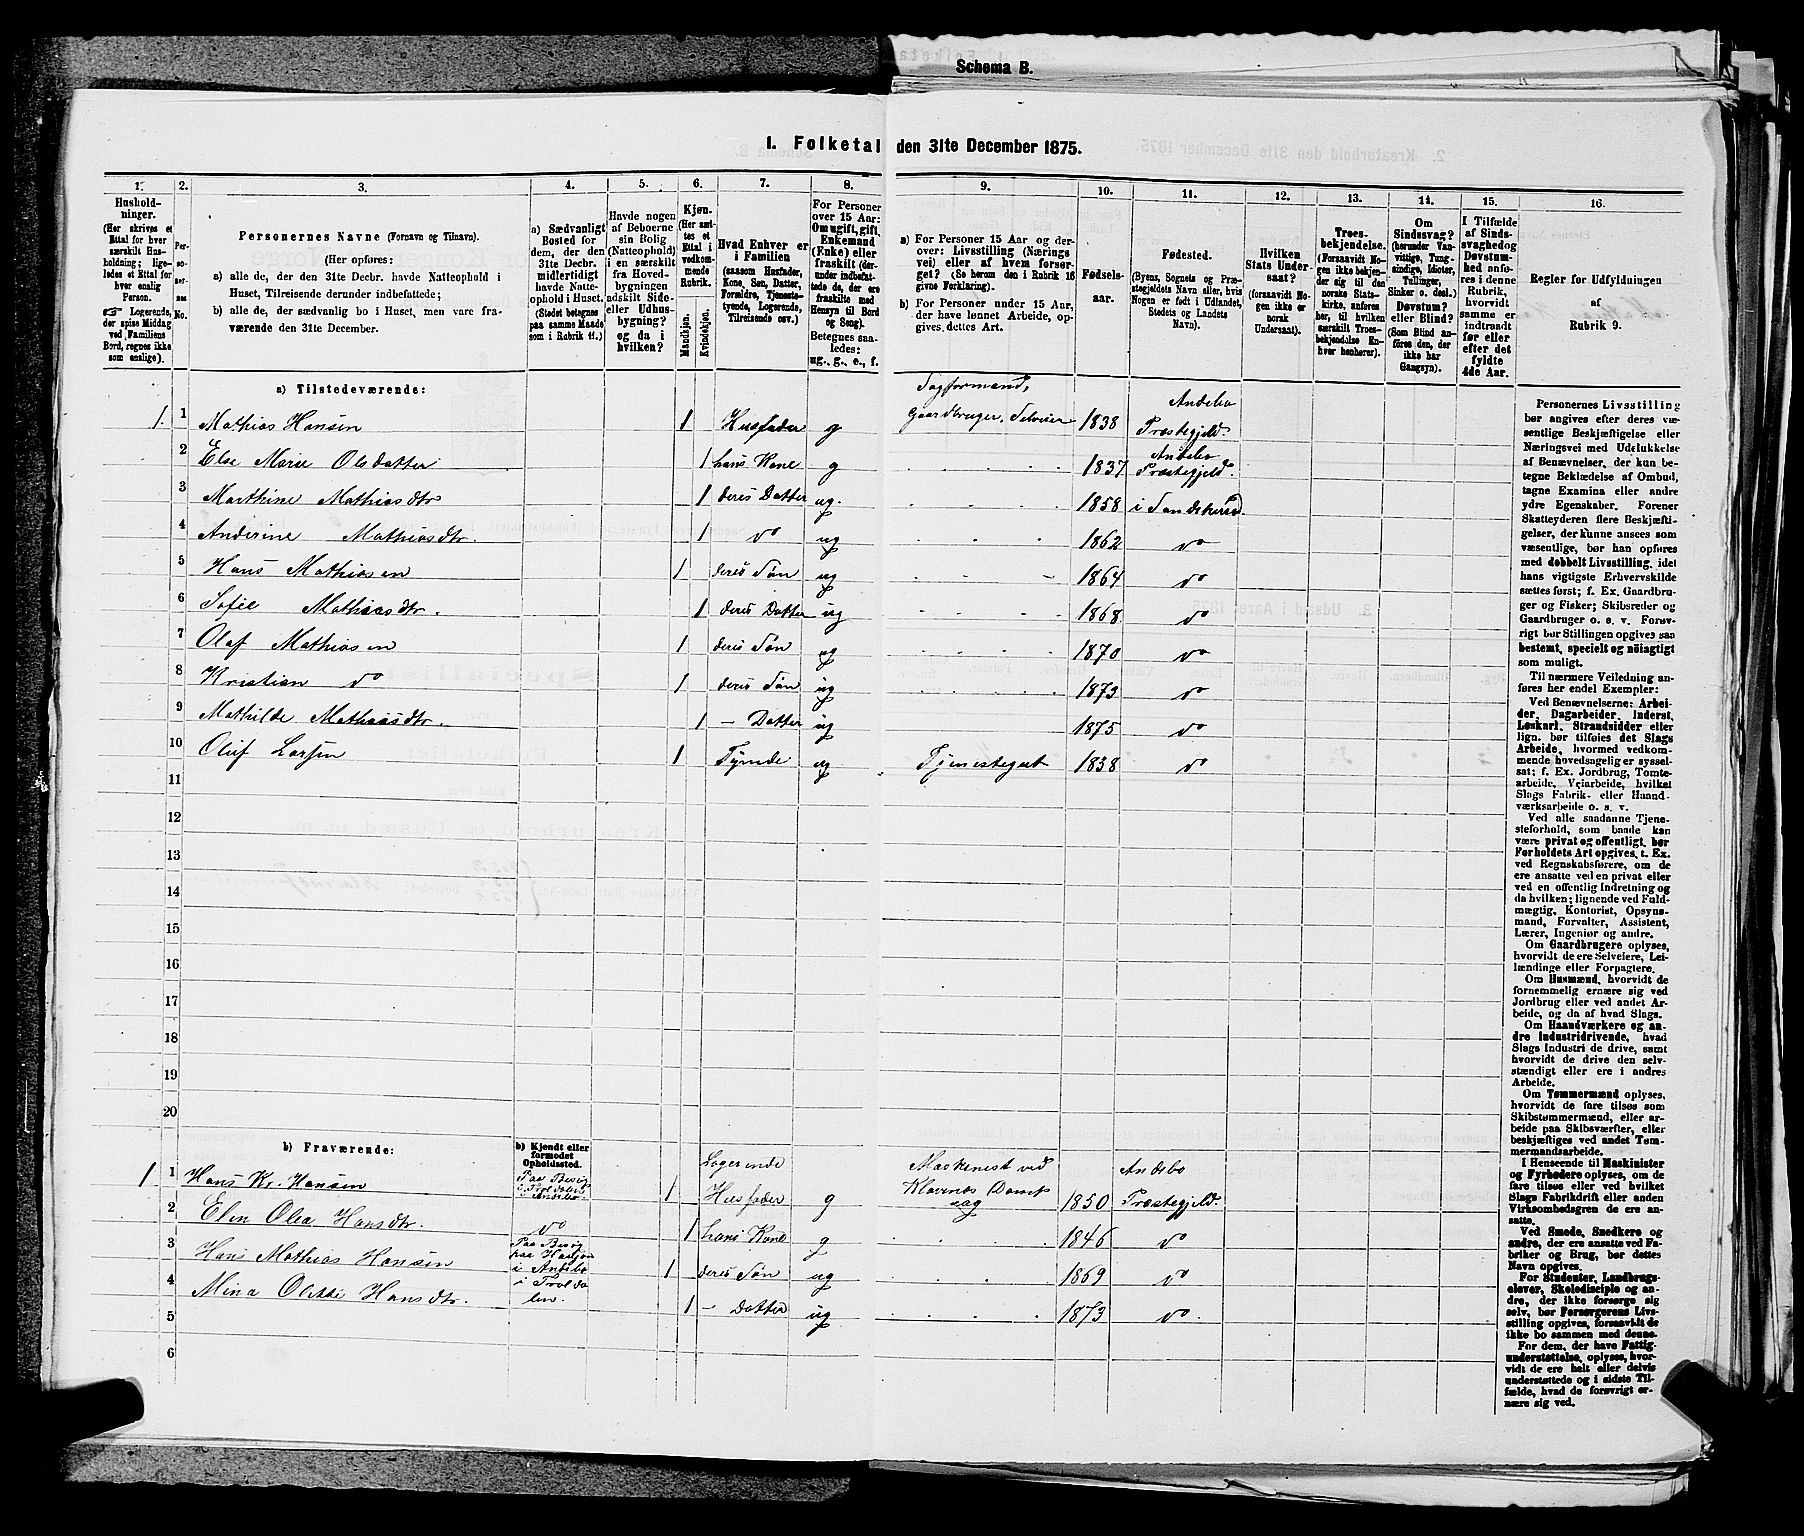 Schema B.
I. Folketal den 31te December 1875.
1.
Husholdninger.
(Her skrives et Ettal for hver særskilt Husholdning; ligeledes et Ettal for hver enslig Person.
☞ Logerende, der spise Middag ved Familiens Bord, regnes ikke som enslige).
2.
Personernes No.
3.
Personernes Navne (Fornavn og Tilnavn).
(Her opføres:
a) alle de, der den 31te Decbr. havde Natteophold i Huset, Tilreisende derunder indbefattede;
b) alle de, der sædvanlig bo i Huset, men vare fraværende den 31te December.
4.
a) Sædvanligt Bosted for dem, der den 31te Decbr. midlertidigt havde Natteophold i Huset.
(Stedet betegnes paa samme Maade som i Rubrik 11.)
5.
Havde nogen af Beboerne sin Bolig (Natteophold) i en særskilt fra Hovedbygningen adskilt Side- eller Udhusbygning? og da i hvilken?
6.
Kjøn.
(Her sættes et Ettal i vedkommende Rubrik.
Mandkjøn.
Kvindekjøn.
7.
Hvad Enhver er i Familien
(saasom Husfader, Kone, Søn, Datter, Forældre, Tjenestetyende, Logerende, Tilreisende osv.)
8.
For Personer over 15 Aar: Om ugift, gift, Enkemand (Enke) eller fraskilt (derunder indbefattede de, der ere fraskilte med Hensyn til Bord og Seng).
Betegnes saaledes:
ug., g., e., f.
9.
a) For Personer 15 Aar og derover: Livsstilling (Næringsvei) eller af hvem forsørget? (Se herom den i Rubrik 16 givne Forklaring.)
b) For Personer under 15 Aar, der have lønnet Arbeide, opgives dettes Art.
10.
Fødselsaar.
11.
Fødested.
(Byens, Sognets og Præstegjeldets Navn eller, hvis Nogen er født i Udlandet, Stedets og Landets Navn).
12.
Hvilken Stats Undersaat?
(forsaavidt Nogen ikke er norsk Undersaat).
13.
Troesbekjendelse.
(Forsaavidt Nogen ikke bekjender sig til den norske Statskirke, anføres her, til hvilken særskilt Troesbekjendelse Enhver henhører).
14.
Om Sindssvag? (herunder Vanvittige, Tungsindige, Idioter, Tullinger, Sinker o. desl.) Døvstum? eller Blind?
(Som Blind anføres den, der ikke har Gangsyn).
15.
I Tilfælde af Sindssvaghed og Døvstumhed anføres i denne Rubrik, hvorvidt samme er indtraadt før eller efter det fyldte 4de Aar.
16.
Regler for Udfyldningen
af
Rubrik 9.
a) Tilstedeværende:
1. 1 Mathias Hansen 1 Husfader g Sagformand, Gaardbruger, Selveier 1838 Andebo Præstegjeld.
2 Else Marie Olsdatter 1 hans Kone g 1837 Andebo Præstegjeld
3 Marthine Mathiasdtr 1 deres Datter ug. 1858 i Sandeherred.
4 Anderine Mathiasdtr. 1 do ug 1862 do
5 Hans Mathiasen 1 deres Søn ug 1864 do
6 Sofie Mathiasdtr. 1 deres Datter ug 1868 do
7 Olaf Mathiasen 1 deres Søn ug 1870 do
8 Kristian do 1 deres Søn ug 1873 do
9 Mathilde Mathiasdtr. 1 – Datter ug 1875 do
10 Oluf Larsen 1 Tyende ug Tjenestegut 1838 do
11
12
13
14
15
16
17
18
19
20
b) Fraværende:
b) Kjendt eller formodet Opholdssted.
1 1 Hans Kr. Hansen Paa Besøg i Trolldalen Andebo 1 Logerende Husfader g Maskenist ved Klavenæs Dampsag 1850 Andebo Præstegjeld.
2 Elen Olea Hansdtr. do 1 hans Kone g 1846 do
3 Hans Mathias Hansen Paa Besøg paa i Andebo 1 deres Søn ug 1869 do
4 Mina Olette Hansdtr. i Troldalen. 1 – Datter ug 1873 do.
5
6
Personernes Livsstilling
bør angives efter deres væ-
sentlige Beskjæftigelse eller
Næringsvei med Udelukkelse
af Benævnelser, der kun be-
tegne Beklædelse af Ombud,
tagne Examina eller andre
ydre Egenskaber. Forener
Skatteyderen flere Beskjæfti-
gelser, der kunne ansees som
væsentlige, bør han opføres
med dobbelt Livsstilling, idet
hans vigtigste Erhvervskilde
sættes først; f. Ex. Gaardbru-
ger og Fisker; Skibsreder og
Gaardbruger o. s. v. Forøv-
rigt bør Stillingen opgives saa
bestemt, specielt og nøiagtigt
som muligt.
Til nærmere Veiledning an-
føres her endel Exempler:
Ved Benævnelserne: Arbei-
der, Dagarbeider, Inderst,
Løskarl, Strandsidder eller
lign. bør tilføies det Slags
Arbeide, hvormed vedkom-
mende hovedsagelig er syssel-
sat; f. Ex. Jordbrug, Tomte-
arbeide, Veiarbeide, hvilket
Slags Fabrik- eller Haand-
værksarbeide o. s. v.
Ved alle saadanne Tjene-
steforhold, som baade kan
være privat og offentligt, bør
Forholdets Art opgives, t. Ex.
ved Regnskabsførere, om de
ere ansatte ved en privat eller
ved en offentlig Indretning og
da hvilken; lignende ved Fuld-
mægtig, Kontorist, Opsyns-
mand, Forvalter, Assistent,
Lærer, Ingeniør og andre.
Om Gaardbrugere oplyses,
hvorvidt de ere Selveiere, Lei-
lændinge eller Forpagtere.
Om Husmænd, hvorvidt de
fornemmelig ernære sig ved
Jordbrug eller ved andet Ar-
beide, og da af hvad Slags.
Om Haandværkere og an-
dre Industridrivende, hvad
Slags Industri de drive, samt
hvorvidt de drive den selv-
stændigt eller ere i andres
Arbeide.
Om Tømmermænd oplyses,
hvorvidt de fare tilsøs som
Skibstømmermænd, eller ar-
beide paa Skibsværfter, eller
beskjæftiges ved andet Tøm-
mermandsarbeide.
I Henseende til Maskinister
og Fyrbødere oplyses, om de
fare tilsøs eller ved hvilket
Slags Fabrikdrift eller anden
Virksombedsgren de ere an-
satte.
Ved Smede, Snedkere og
andre, der ere ansatte ved Fa-
briker og Brug, bør dettes
Navn opgives.
For Studenter, Landbrugs-
elever, Skoledisciple og an-
dre, der ikke forsørge sig
selv, bør Forsørgerens Livs-
stilling opgives, forsaavidt de
ikke bo sammen med denne.
For dem, der have Fattig-
understøttelse, oplyses, hvor-
vidt de ere helt eller delvis
understøttede og i sidste Til-
fælde, hvad de forøvrigt er-
nære sig ved.